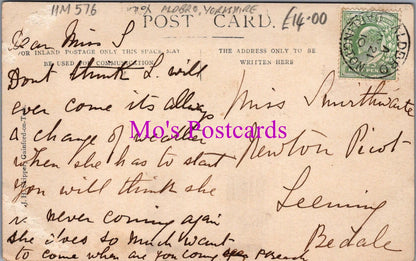 HM576
ALDBRO, YORKSHIRE
£14.00
POST CARD.
FOR INLAND POSTAGE ONLY THIS SPACE MAY
BE USED FOR COMMUNICATION.
THE ADDRESS ONLY TO BE
WRITTEN HERE
Dear Miss S
Dont think L. will
ever come its allways
a change of weather
when she has to start
you will think she
is never coming again
she does so much want
to come when are you coming
Miss Smirthwaite
Newton Picot
Leeming
Bedale
Mo's Postcards
Gainford-on-Tees